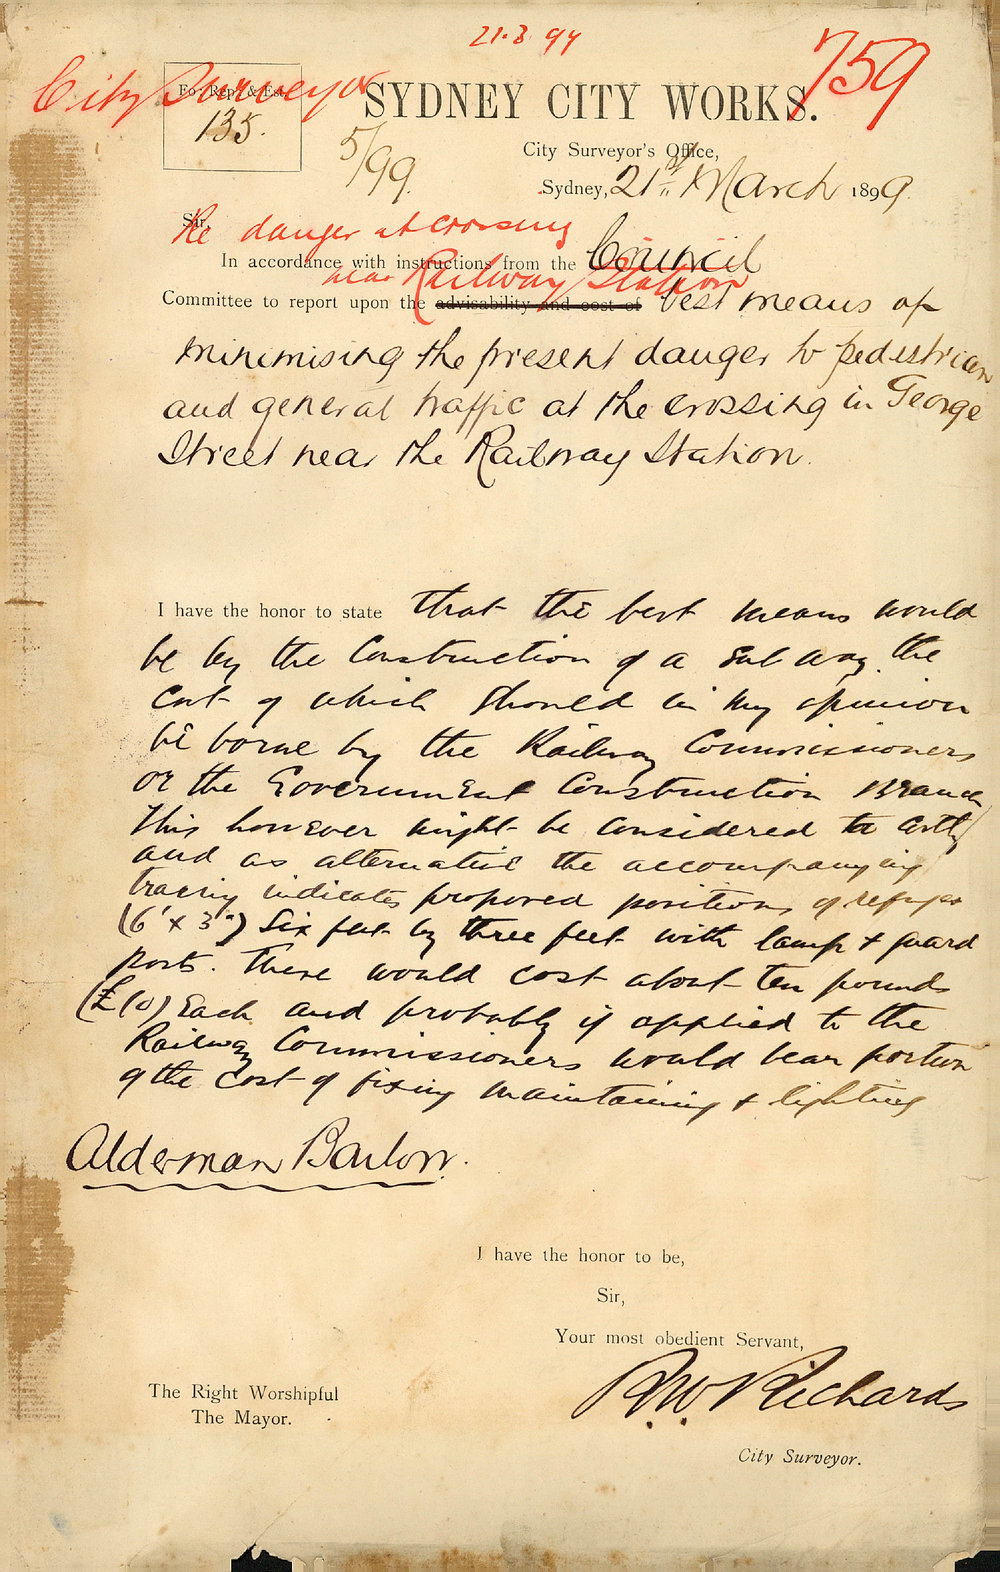 21.3.99
759
City Surveyor
For Rep. & Est.
135.
5/99.
SYDNEY CITY WORKS.
City Surveyor's Office,
Sydney, 21st March 1899
Sir,
Re danger at crossing
near Railway Station
In accordance with instructions from the Council
Committee to report upon the advisability and cost of best means of
minimising the present danger to pedestrian
and general traffic at the crossing in George
Street near the Railway Station.
I have the honor to state that the best means would
be by the Construction of a Subway. the
Cost of which should in my opinion
be borne by the Railway Commissioners
or the Government Construction Branch
This however might be Considered too costly
and as alternative the accompanying
tracing indicates proposed positions of refuges
(6' x 3') Six feet by three feet with lamp & guard
posts. These would cost about ten pounds
(£10) Each and probably if applied to the
Railway Commissioners would bear portion
of the Cost of fixing maintaining & lighting
Alderman Barlow.
I have the honor to be,
Sir,
Your most obedient Servant,
R.W. Richards
City Surveyor.
The Right Worshipful
The Mayor.